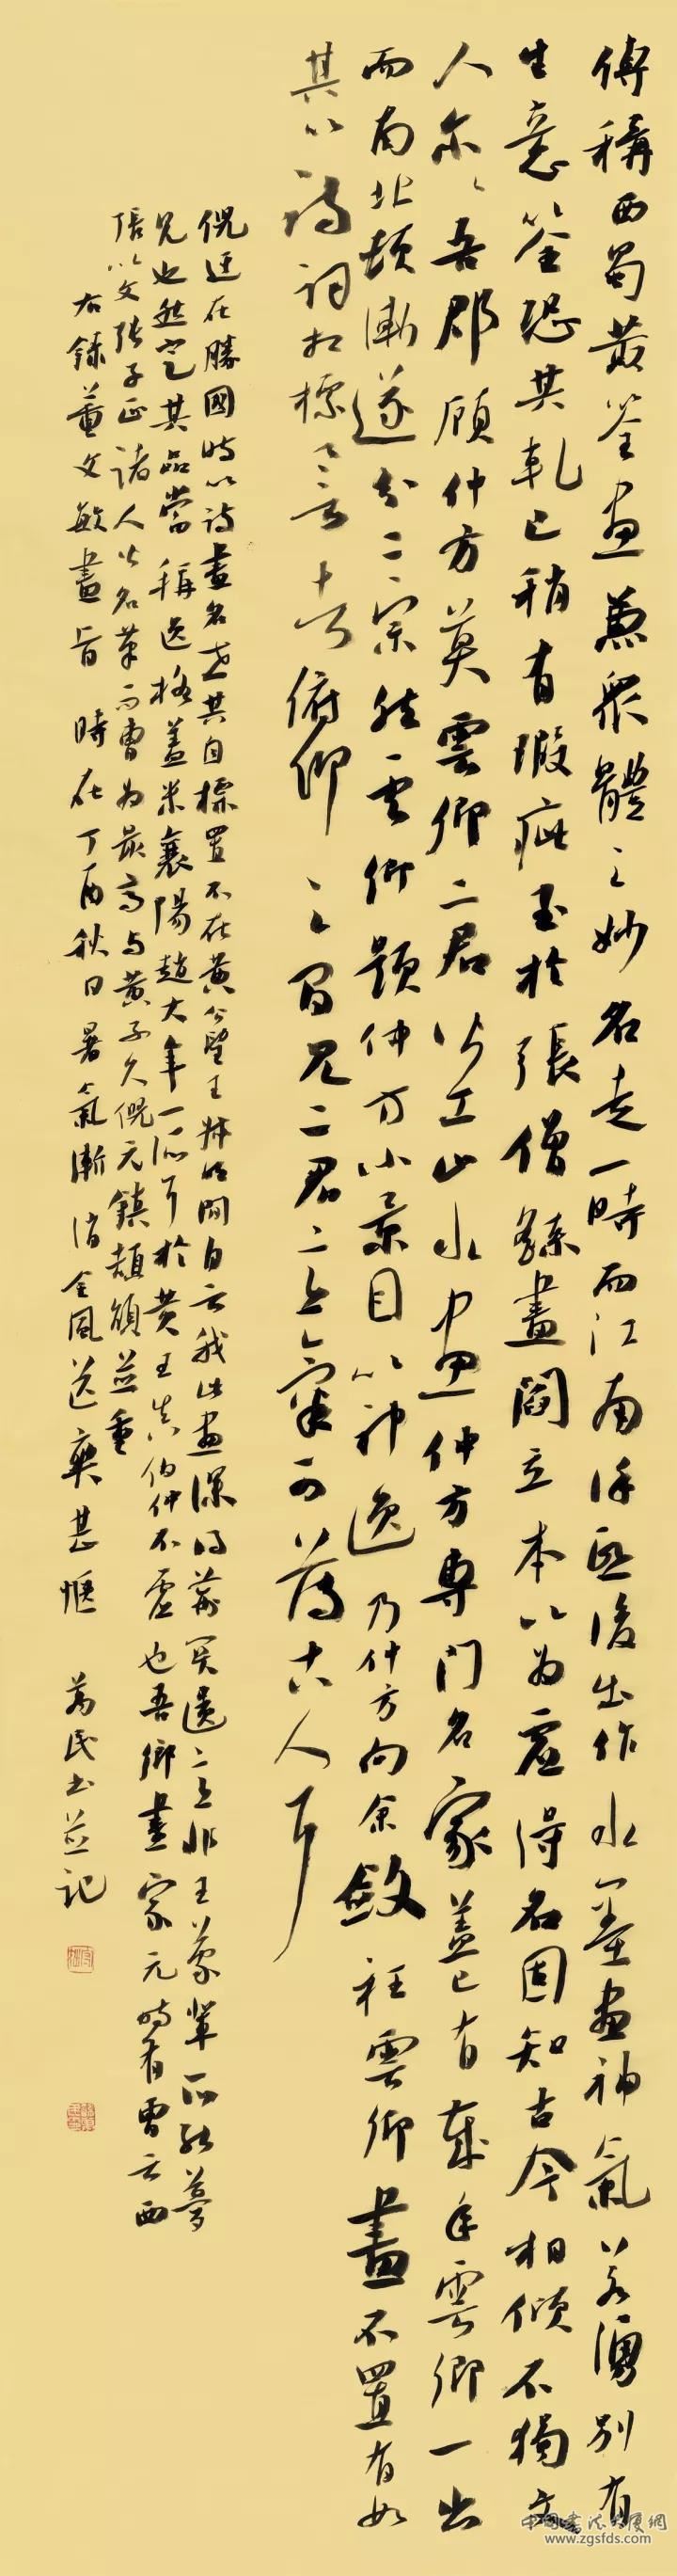 传称西蜀黄筌画兼众體之妙名走一時而江南徐熙後出作水墨画神氣若湧别有
生意筌恐其軋己稍有瑕疵至於張僧繇畫閻立本以為虚得名固知古今相傾不獨文
人尔尔吾郡顧仲方莫雲卿二君皆工山水画仲方専門名家蓋已有年雲卿一出
而南北頓漸遂分二宗然雲卿題仲方小景目以神逸乃仲方向余斂衽雲卿畫不置有如
其以詩詞相標譽者俯仰之間見二君二意氣可薄古人耳
倪迂在勝國時以詩畫名世其自標置不在黄公望王叔明間自云我此画深得荆関遺意非王蒙輩所能夢
見也然定其品當稱逸格蓋米襄陽趙大年一派耳於黄王真伯仲不虚也吾鄉畫家元時有曹云西
張以文張子正諸人皆名筆而曹為最高与黄子久倪元鎮頡頏並重
右録董文敏畫旨 時在丁酉秋日暑氣漸消金風送爽甚惬 為民书並记
中国书法发展網
www.zgsfds.com